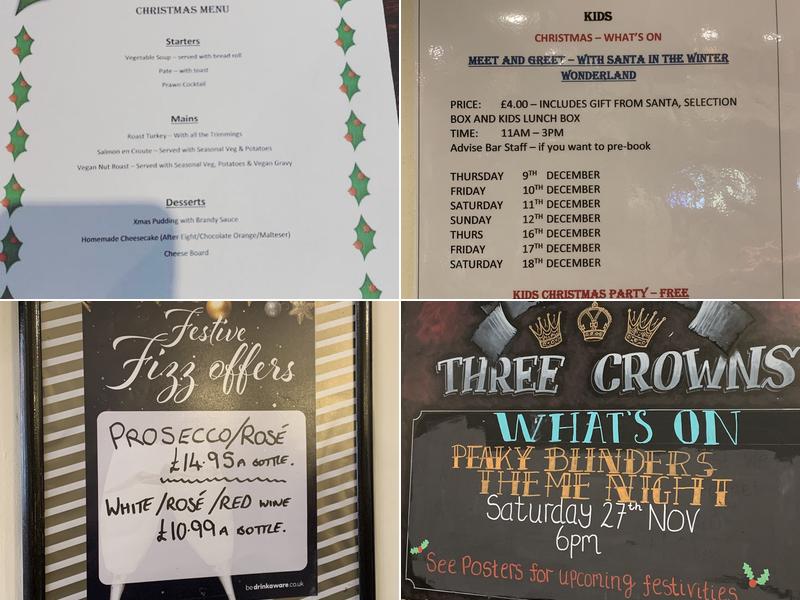 CHRISTMAS MENU
Starters
Vegetable Soup – served with bread roll
Pate – with toast
Prawn Cocktail
Mains
Roast Turkey – With all the Trimmings
Salmon en Croute – Served with Seasonal Veg & Potatoes
Vegan Nut Roast – Served with Seasonal Veg, Potatoes & Vegan Gravy
Desserts
Xmas Pudding with Brandy Sauce
Homemade Cheesecake (After Eight/Chocolate Orange/Malteser)
Cheese Board
KIDS
CHRISTMAS – WHAT'S ON
MEET AND GREET – WITH SANTA IN THE WINTER
WONDERLAND
PRICE: £4.00 – INCLUDES GIFT FROM SANTA, SELECTION
BOX AND KIDS LUNCH BOX
TIME: 11AM – 3PM
Advise Bar Staff – if you want to pre-book
THURSDAY 9TH DECEMBER
FRIDAY 10TH DECEMBER
SATURDAY 11TH DECEMBER
SUNDAY 12TH DECEMBER
THURS 16TH DECEMBER
FRIDAY 17TH DECEMBER
SATURDAY 18TH DECEMBER
KIDS CHRISTMAS PARTY – FREE
Festive
Fizz offers
PROSECCO/ROSÉ
£14.95 A BOTTLE.
WHITE/ROSÉ/RED WINE
£10.99 A BOTTLE.
bedrinkaware.co.uk
THREE CROWNS
WHAT'S ON
PEAKY BLINDERS
THEME NIGHT
Saturday 27th NOV
6pm
See Posters for upcoming festivities